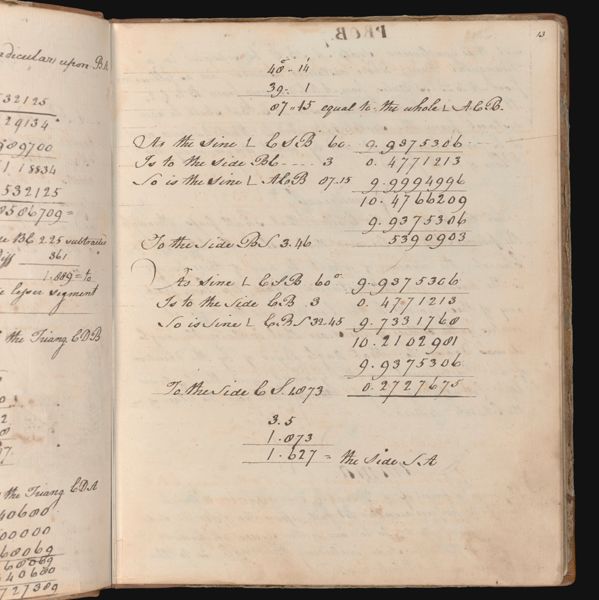 adicular upon BA
532125
29134
989700
11 18834
532125
8586709=
BC 2.25 subtracted
diff 361
1.889 = to
lesser segment
the Triang CDB
the Triang CDA
40680
00000
68069
68069
40680
727389
13
PROB.
48° .. 14'
39 .. 1
87 .. 15 equal to the whole L ACB
As the sine L CSB 60 . 9.9375306
Is to the side BC .... 3 0.4771213
So is the sine L ACB 87.15 9.9994996
10.4766209
9.9375306
To the side BS 3.46 5390903
As sine L CSB 60° 9.9375306
Is to the side CB 3 0.4771213
So is sine L CBS 32.45 9.7331768
10.2102981
9.9375306
To the side CS. 1873 0.2727675
3.5
1.873
1.627 = the side SA